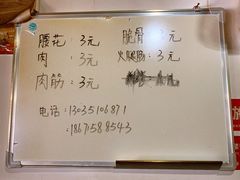 腰花：3元
肉：3元
肉筋：3元
脆骨：3元
火腿肠：3元
电话：13035106871
：18671588543